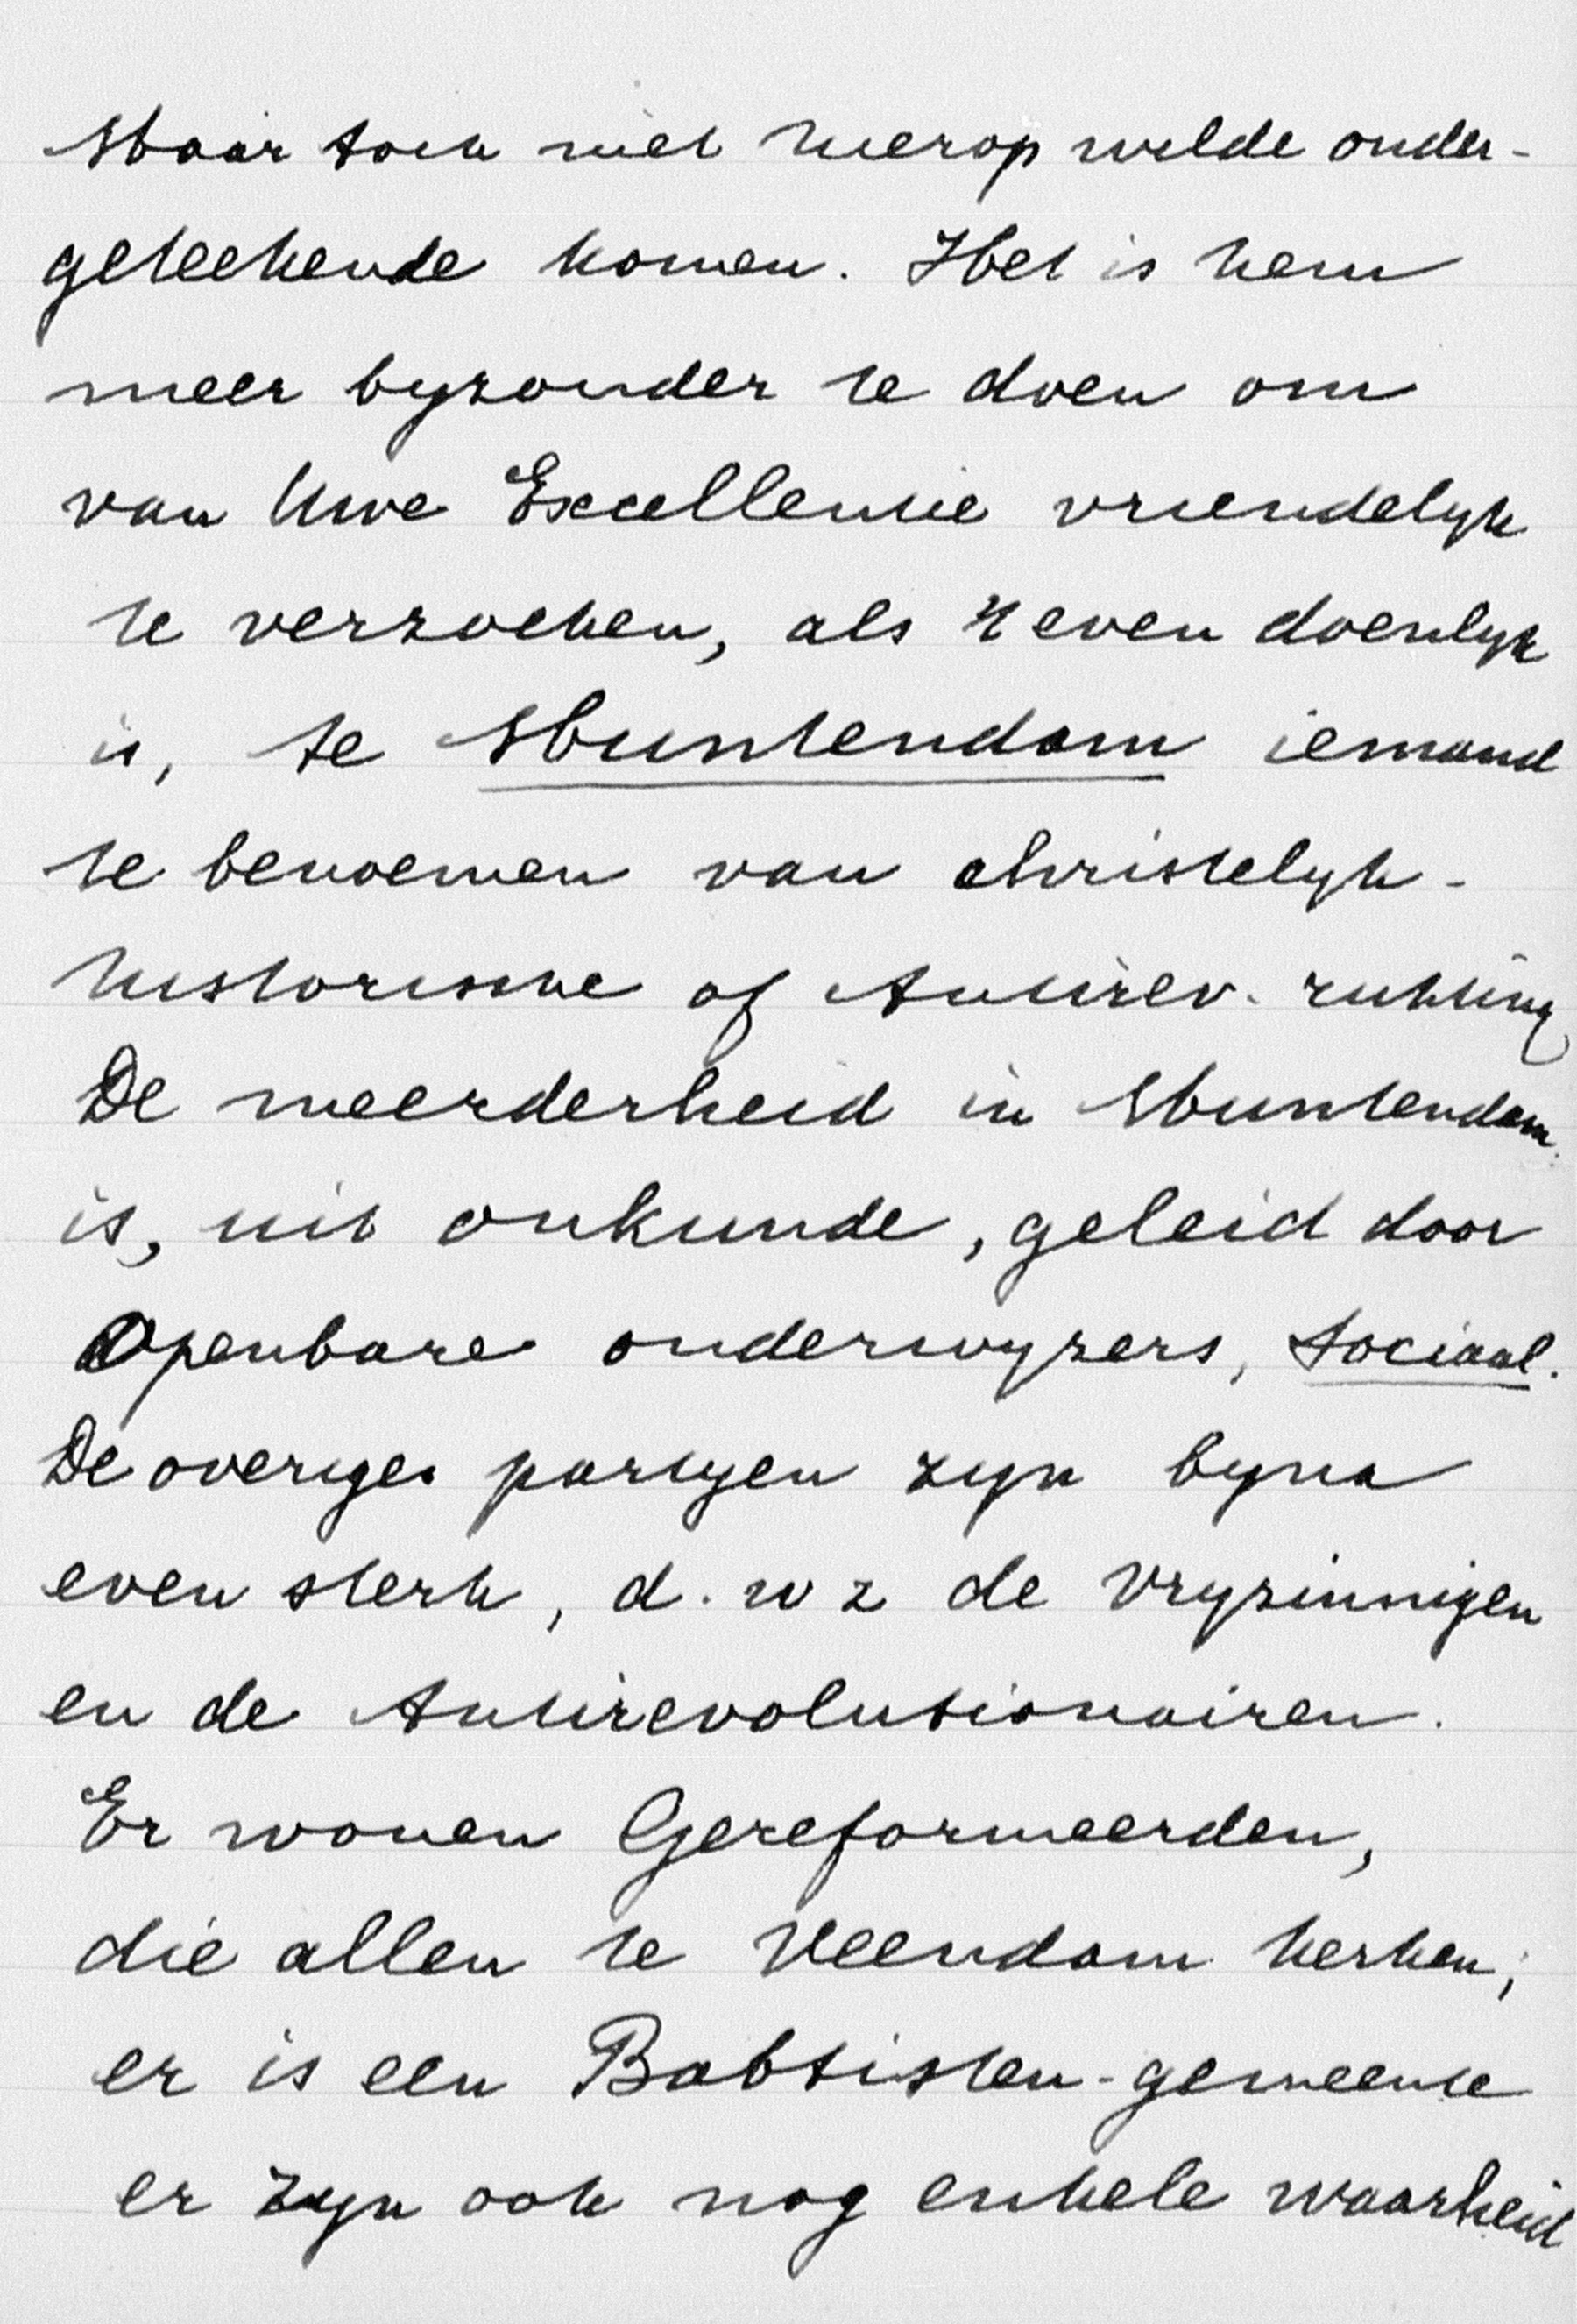 Maar toch niet hierop wilde onder-
geteekende komen. Het is hem
meer byzonder te doen om
van Uwe Excellentie vriendelyk
te verzoeken, als 't even doenlyk
is, te Muntendam iemand
te benoemen van christelyk-
historische of Antirev. richting
De meerderheid in Muntendam
is, uit onkunde, geleid door
Openbare onderwyzers, sociaal.
De overige partyen zyn byna
even sterk, d. w z de vryzinnigen
en de Antirevolutionairen.
Er wonen Gereformeerden,
die allen te Veendam kerken;
er is een Babtisten-gemeente
er zyn ook nog enkele waarheid